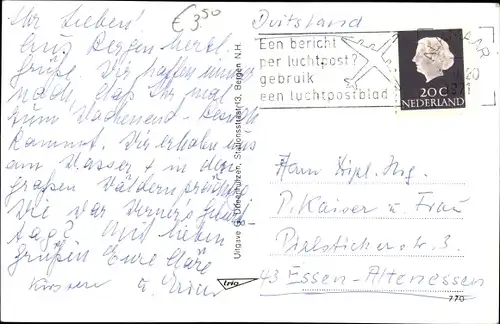 Ihr Lieben!
€ 3,50
Aus Bergen herzl.
Grüße. Wir hoffen immer
noch, daß Ihr mal
zum Wochenend-Besuch
kommt. Wir erholen uns
am Wasser + in den
großen Wäldern prächtig.
Wie war Werner's
tag? Mit lieben
Grüßen Eure Cläre
u. Erwin
Uitgave G. Stationsstraat 3, Bergen N.H.
trio
Duitsland
Een bericht
per luchtpost?
gebruik
een luchtpostblad
ALKMAAR
20
1971
20 C
NEDERLAND
Herrn Dipl. Ing.
P. Kaiser u. Frau
Pielstickerstr. 3.
43 Essen-Altenessen
770